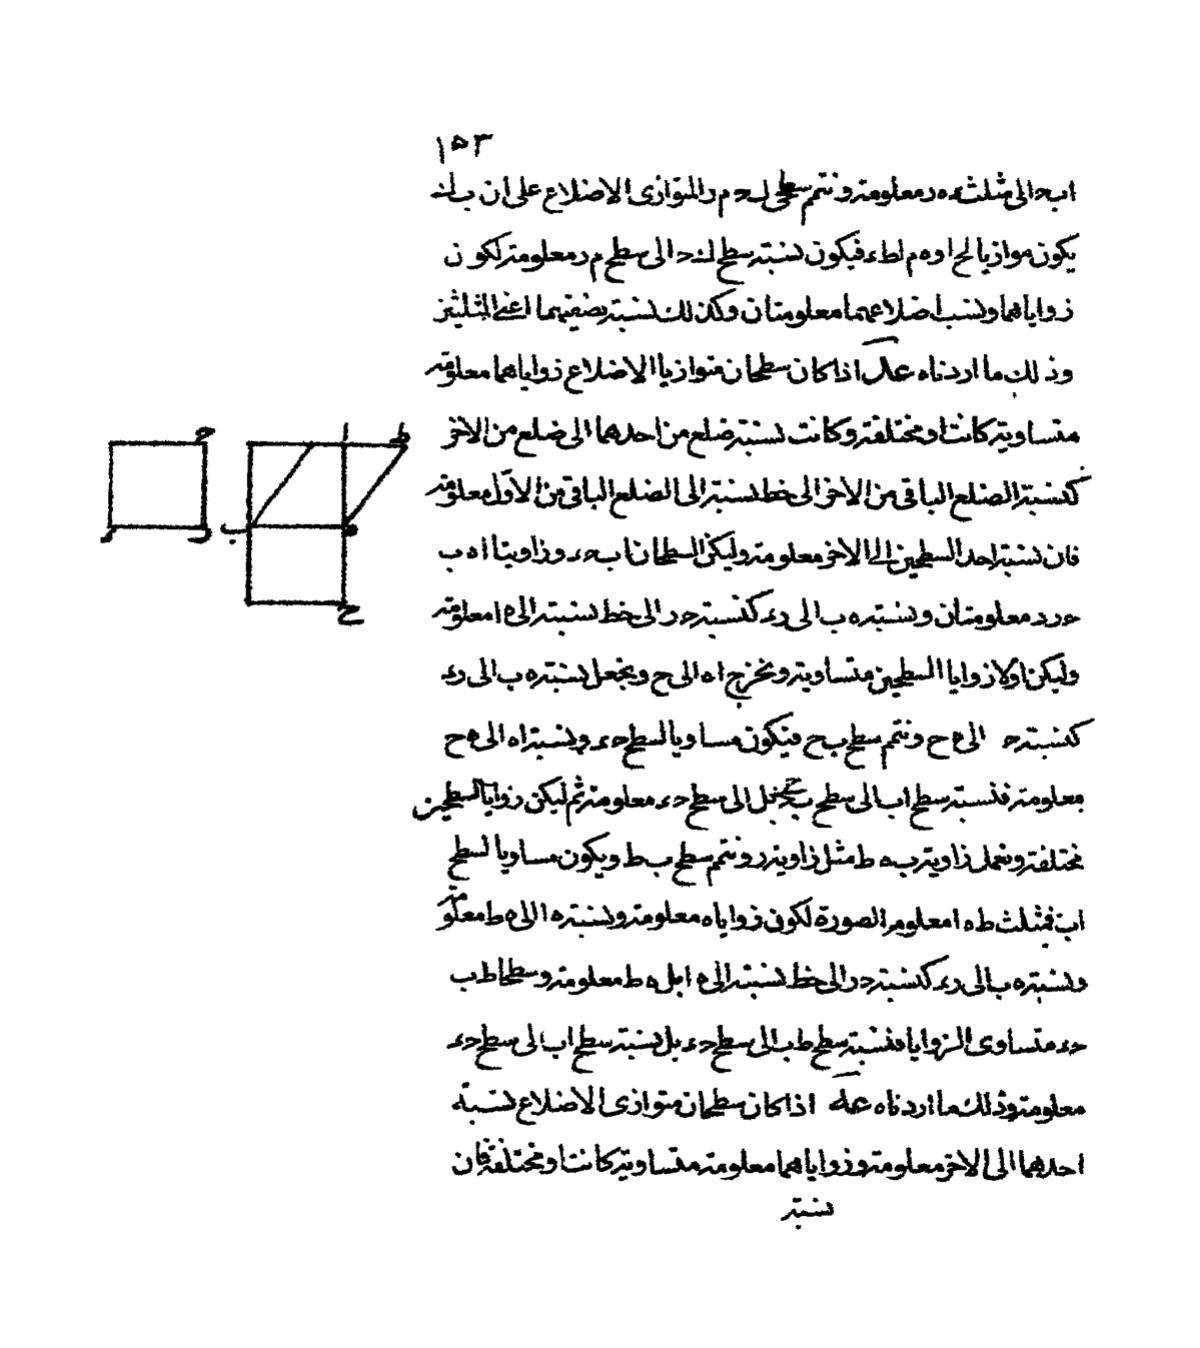 ١٥٣
اب ح الى مثلث ء ه ر معلومة ونتمم سطحى ل ح م ر المتوازى الاضلاع على ان ب ل
يكون موازيا لح ا و ه م لط ء فيكون نسبة سطح ل ح الى سطح م ر معلومة لكون
زواياهما ونسب اضلاعهما معلومتان وكذلك نسبة نصفيهما اعنى المثلثين
وذلك ما اردناه عد اذا كان سطحان متوازيا الاضلاع زواياهما معلومة
متساوية كانت او مختلفة وكانت نسبة ضلع من احدهما الى ضلع من الاخر
كنسبة الضلع الباقى من الاخر الى خط نسبته الى الضلع الباقى من الاول معلومة
فان نسبة احد السطحين الى الاخر معلومة وليكن السطحان اب ح ء وزاويتا ا ه ب
ح ر د معلومتان ونسبة ه ب الى رء كنسبة ح ر الى خط نسبته الى ه ا معلومة
وليكن اولا زوايا السطحين متساوية ونخرج ا ه الى ح ونجعل نسبة ه ب الى رء
كنسبة ح الى ه ح ونتمم سطح ب ح فيكون مساويا لسطح ح ء ونسبة اه الى ه ح
معلومة فنسبة سطح اب الى سطح ب ح بل الى سطح ح ء معلومة ثم ليكن زوايا السطحين
مختلفة ونعمل زاوية ب ه ط مثل زاوية ر ونتمم سطح ب ط ويكون مساويا لسطح
اب فمثلث ط ه ا معلوم الصورة لكون زواياه معلومة ونسبة ه ا الى ه ط معلومة
ونسبة ه ب الى رء كنسبة ح ر الى خط نسبته الى ه ا بل ه ط معلومة وسطحا ط ب
ح ء متساوى الزوايا فنسبة سطح ط ب الى سطح ح ء بل نسبة سطح اب الى سطح ح ء
معلومة وذلك ما اردناه عه اذا كان سطحان متوازى الاضلاع نسبة
احدهما الى الاخر معلومة وزواياهما معلومة متساوية كانت او مختلفة فان
نسبة
ح
ط
ر
ب
ه
ح